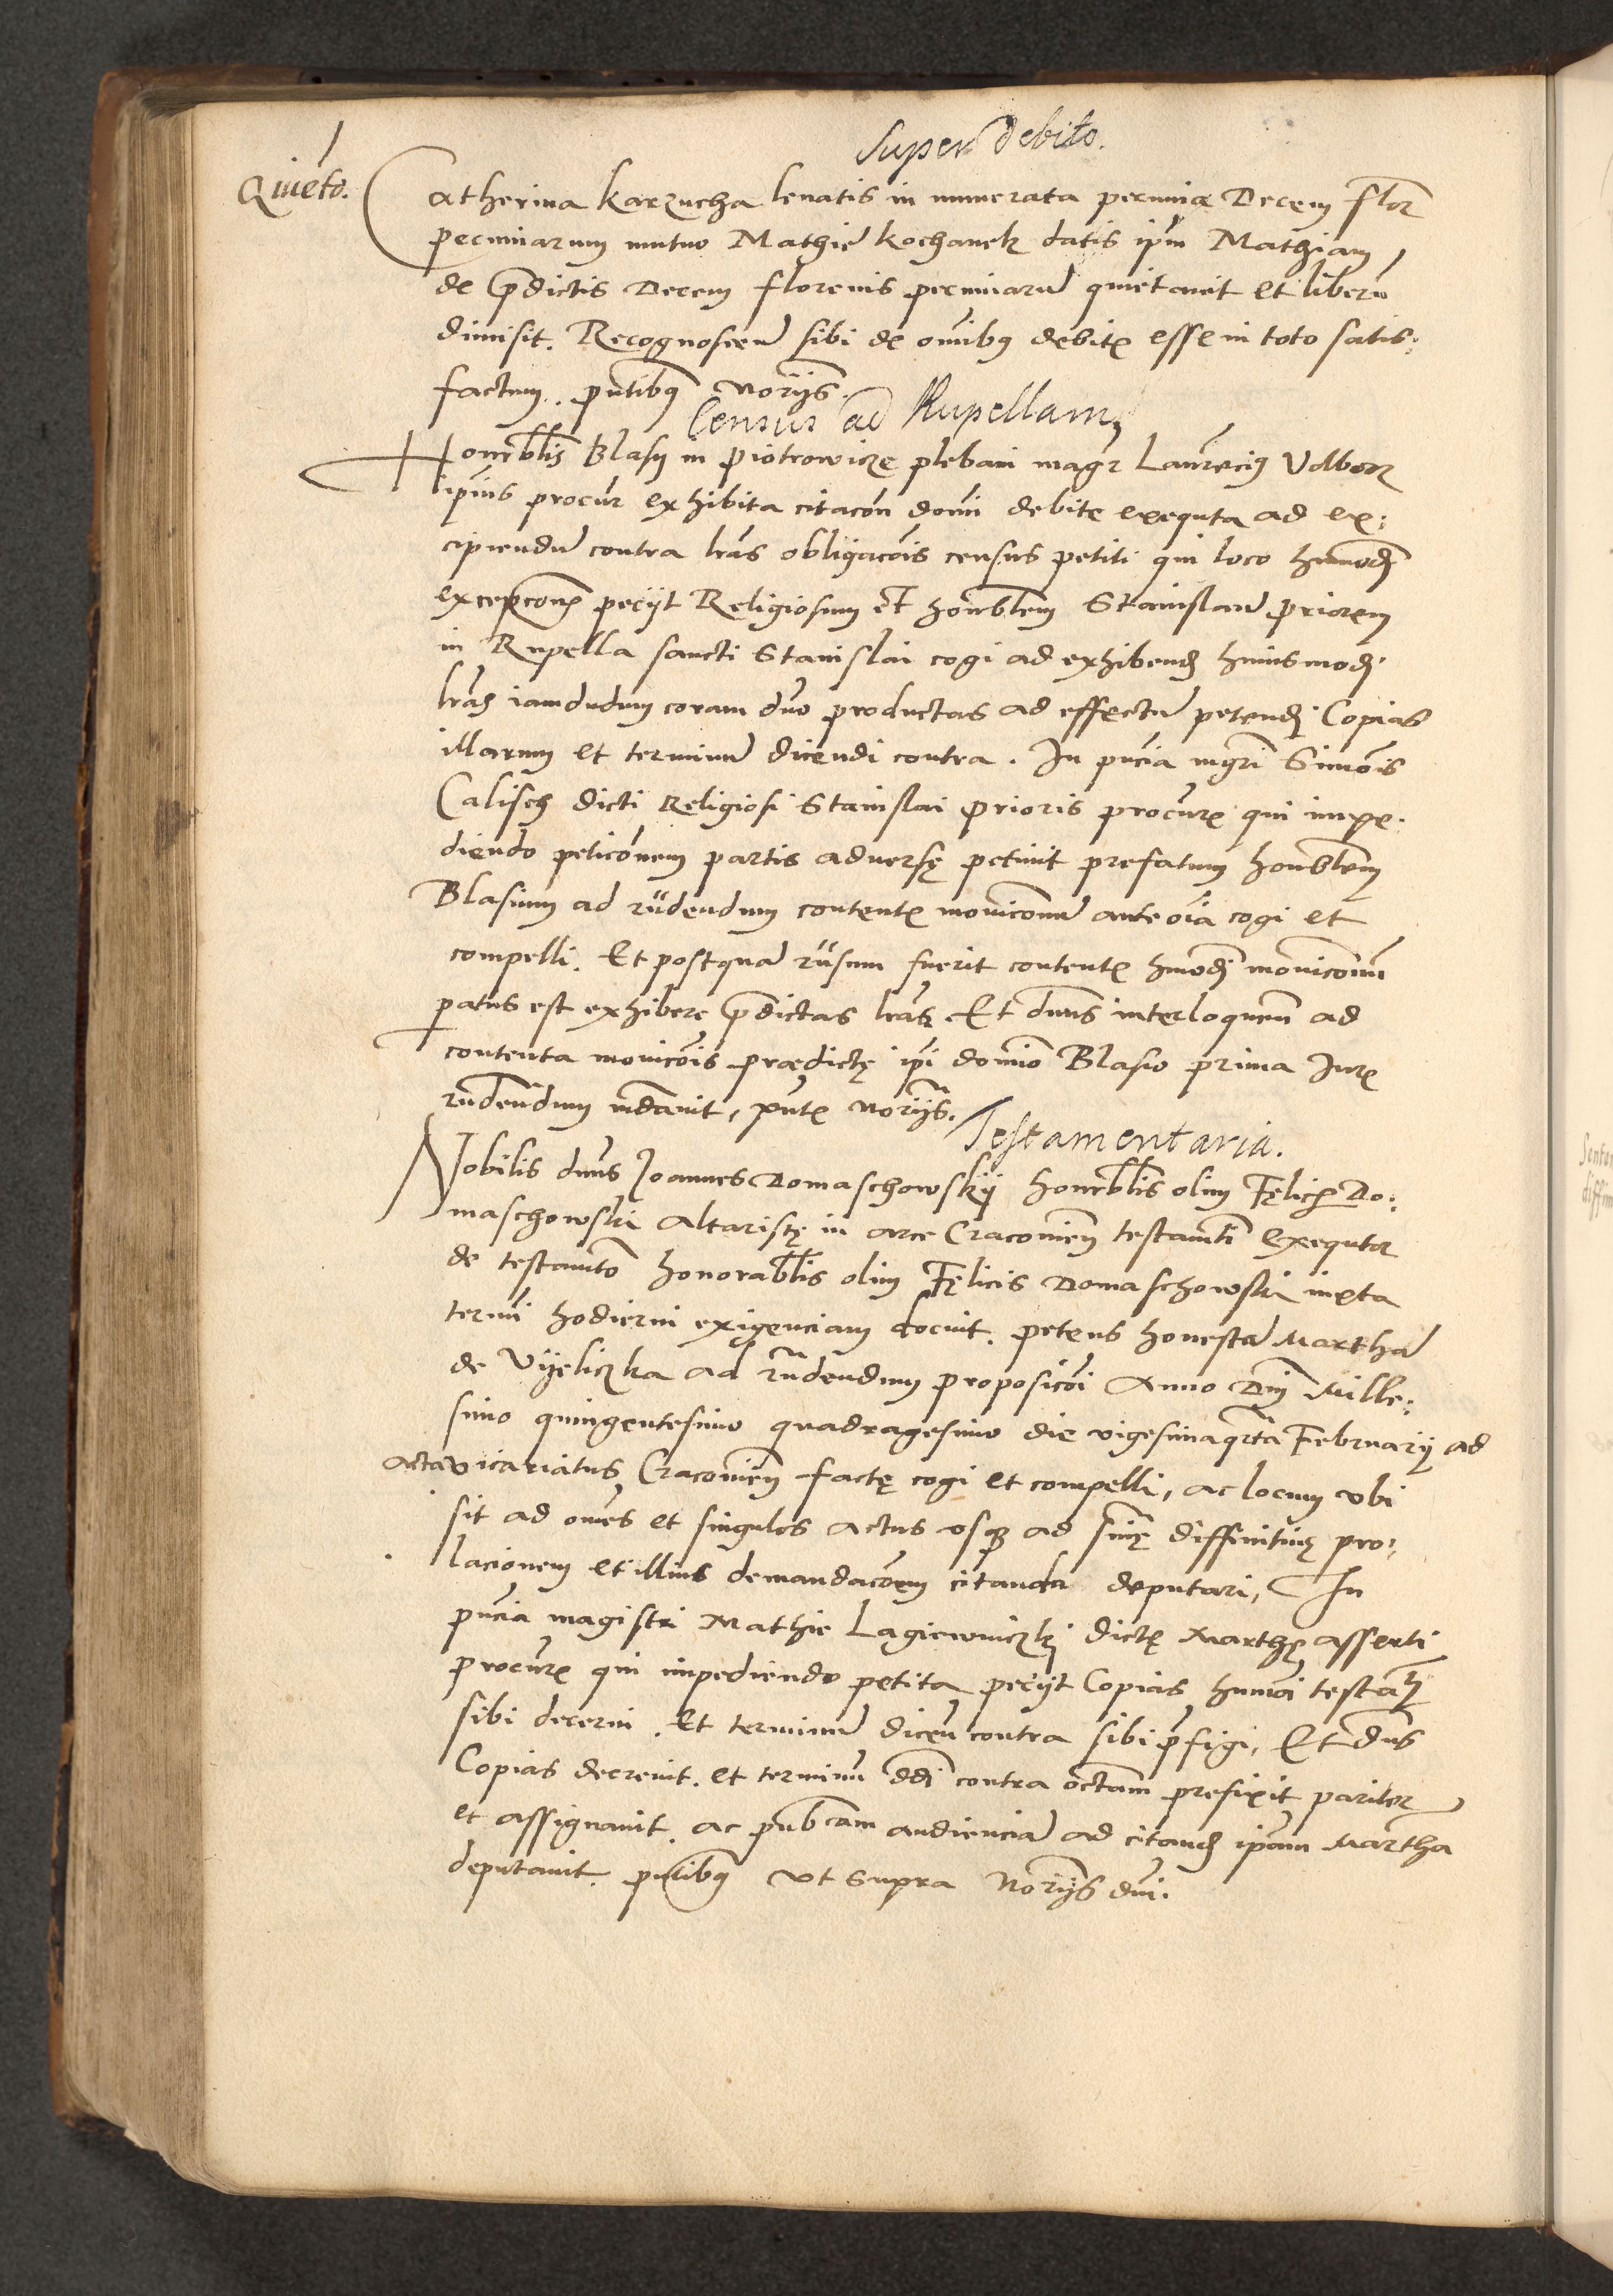 Super debito.
Quieto.
Catherina Karzucha levatis in numerata pecunia Decem flor
pecuniarum mutuo Mathie Kochanek datis ipm Mathiam
de pdictis Decem florenis pecuniaru quietavit et liberu
dimisit. Recognoscen sibi de omibus debit esse in toto satis:
factum. pntibus noriis.
Census ad Rupellam
Honrblis Blasii in Piotrowicze plebani magr Laurecius
ipius procur exhibita citacon domi debite exequta ad ex:
cipiendu contra lras obligacois census petiti qui loco hmodi
excepcon petiit Religiosum et honrblem Stanislau priorem
in Rupella sancti Stanislai cogi ad exhibend huiusmodi
lras iamdudum coram dno productas ad effectu petendi Copias
illarum et terminu dicendi contra. In pncia mgri Simois
Calisch dicti Religiosi Stanislai prioris procur qui impe-
diendo peticionem partis adversę petivit prefatum honrblem
Blasium ad rndendum content monicionu ante oia cogi et
compelli. Et postqua rnsum fuerit content hmodi monicionu
patus est exhibere pdictas lras. Et dnus interloquen ad
contenta monicois praedictę ipi domino Blasio prima Jur
rndendum mdavit, pnt noriis.
Testamentaria.
Nobilis dnus Joannes Domaschowskij honrblis olim Fęlicis Do:
maschowski Altaristę in arce Cracovien testamti exequtor
de testamto honorablis olim Fęlicis Domaschowski iuxta
termi hodierni exigenciam docuit. petens honesta Martha
de Vyeliczka ad rndendum proposicoi Anno Dni Mille:
simo quingentesimo quadragesimo die vigesimaqrta Februarii ad
acta vicariatus Cracovien factę cogi et compelli, ac locum ubi
sit ad omes et singulos actus usq ad snię diffinitivę pro:
lacionem et illius demandacoem citanda deputari, In
pncia magistri Mathie Lagiewniczki dictę Marthę asserti
procur qui impediendo petita petiit Copias hmoi testati
sibi decerni. Et terminu dicen contra sibi pfigi, Et dnus
Copias decrevit. et terminu ddi contra octam prefixit pariter
et assignavit. ac pubcam audiencia ad citand ipam Martha
deputavit. pntibus ut supra Noriis dni.